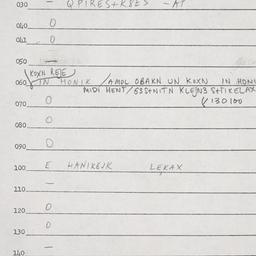 030 — QPIRES+K8ES —AP
040 O
041 O
050 —
KOXN REJE
060 IN HONIK /AMOL OBAKN UN KOXN IN HONI
MIDI HENT/53S+NITN KLEJN3 S+TIKELAX
070 O (/130100
080 O
090 O
100 E HANIKEJK LEKAX
—
110
120 O
130 O
140 —